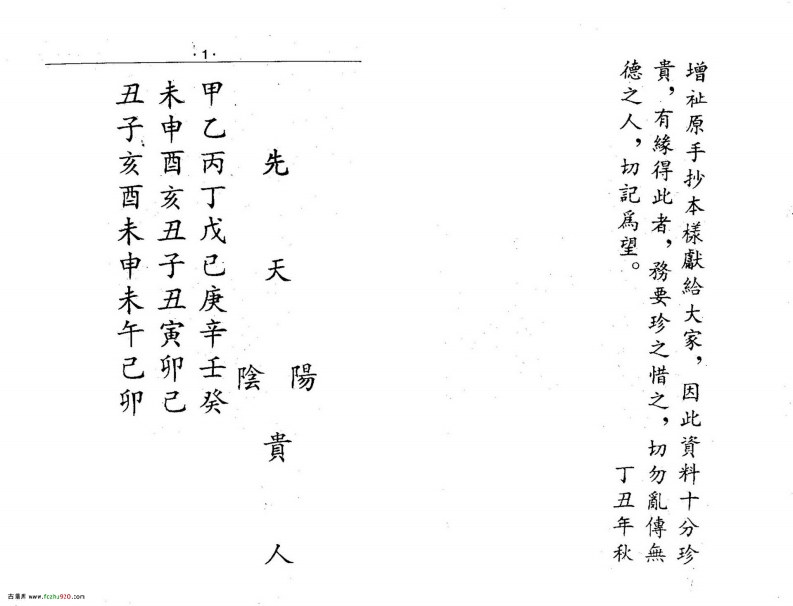 增祉原手抄本樣獻給大家，因此資料十分珍
貴，有緣得此者，務要珍之惜之，切勿亂傳無
德之人，切記爲望。
丁丑年秋
·1·
先天陽陰貴人
甲乙丙丁戊己庚辛壬癸
未申酉亥丑子丑寅卯己
丑子亥酉未申未午己卯
古易库 www.fczhu920.com